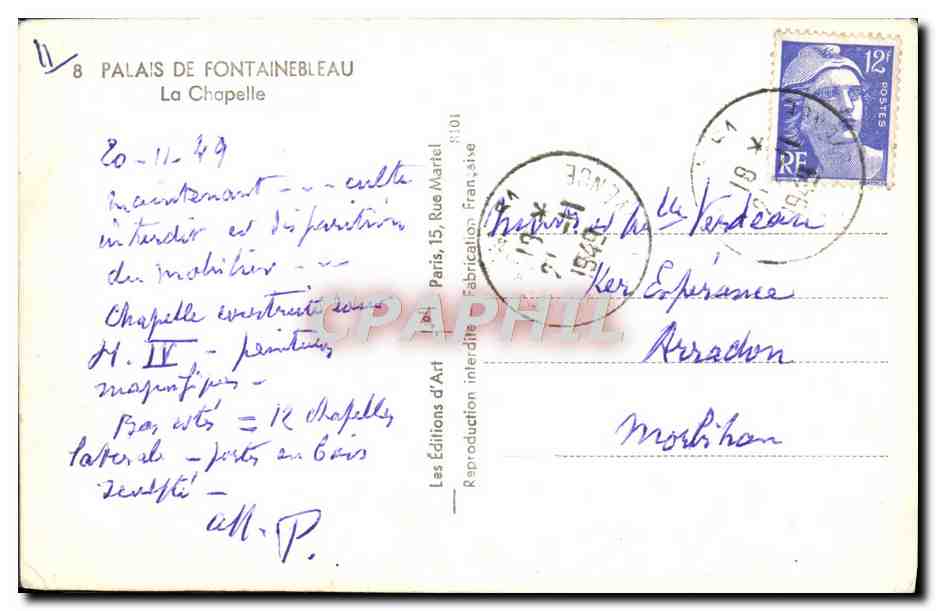 11
8 PALAIS DE FONTAINEBLEAU
La Chapelle
20-11-49
maintenant - - culte
interdit et disparition
du mobilier - -
Chapelle construite sous
H. IV - peintures
magnifiques -
Bas côtés = 12 chapelles
laterale - portes en bois
sculpté -
aff. P.
Les Editions d'Art Paris, 15, Rue Martel
8101
Reproduction interdite Fabrication Française
12F
POSTES
RF
PARIS R.1
19 *
21 -11
1949
19 *
21 -11
1949
et Melle Verdeau
Ker Espérance
Arradon
Morbihan
CPAPHIL